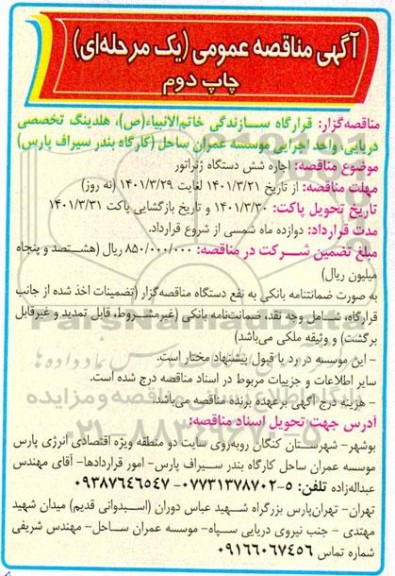 آگهی مناقصه عمومی (یک مرحله‌ای)
چاپ دوم
مناقصه‌گزار: قرارگاه سازندگی خاتم‌الانبیاء(ص)، هلدینگ تخصصی
دریایی واحد اجرایی موسسه عمران ساحل (کارگاه بندر سیراف پارس)
موضوع مناقصه: اجاره شش دستگاه ژنراتور
مهلت مناقصه: از تاریخ ۱۴۰۱/۳/۲۱ لغایت ۱۴۰۱/۳/۲۹ (نه روز)
تاریخ تحویل پاکت: ۱۴۰۱/۳/۳۰ و تاریخ بازگشایی پاکت ۱۴۰۱/۳/۳۱
مدت قرارداد: دوازده ماه شمسی از شروع قرارداد.
مبلغ تضمین شرکت در مناقصه: ۸۵۰/۰۰۰/۰۰۰ ریال (هشتصد و پنجاه
میلیون ریال)
به صورت ضمانتنامه بانکی به نفع دستگاه مناقصه‌گزار (تضمینات اخذ شده از جانب
قرارگاه، شامل وجه نقد، ضمانت‌نامه بانکی (غیرمشروط، قابل تمدید و غیرقابل
برگشت) و وثیقه ملکی می‌باشد)
- این موسسه در رد یا قبول پیشنهاد مختار است.
سایر اطلاعات و جزییات مربوط در اسناد مناقصه درج شده است.
- هزینه درج آگهی برعهده برنده مناقصه می‌باشد.
آدرس جهت تحویل اسناد مناقصه:
بوشهر- شهرستان کنگان روبه‌روی سایت دو منطقه ویژه اقتصادی انرژی پارس
موسسه عمران ساحل کارگاه بندر سیراف پارس- امور قراردادها- آقای مهندس
عبداله‌زاده تلفن: ۵-۰۷۷۳۱۳۷۸۷۰۲- ۰۹۳۸۷۶۴۶۵۴۷
تهران- تهران‌پارس بزرگراه شهید عباس دوران (استخر قدیم) میدان شهید
مهتدی - جنب نیروی دریایی سپاه- موسسه عمران ساحل- مهندس شریفی
شماره تماس ۰۹۱۶۶۰۶۷۴۵۶